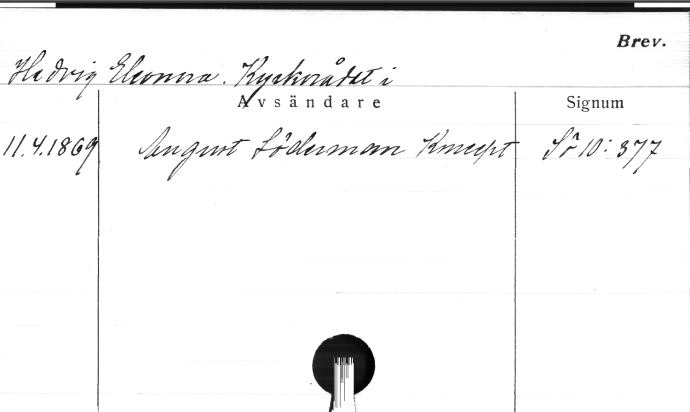 Brev.
Hedvig Eleonora. Kyrkorådet i
Avsändare Signum
11.4.1869 August Söderman Koncept Sö 10: 377